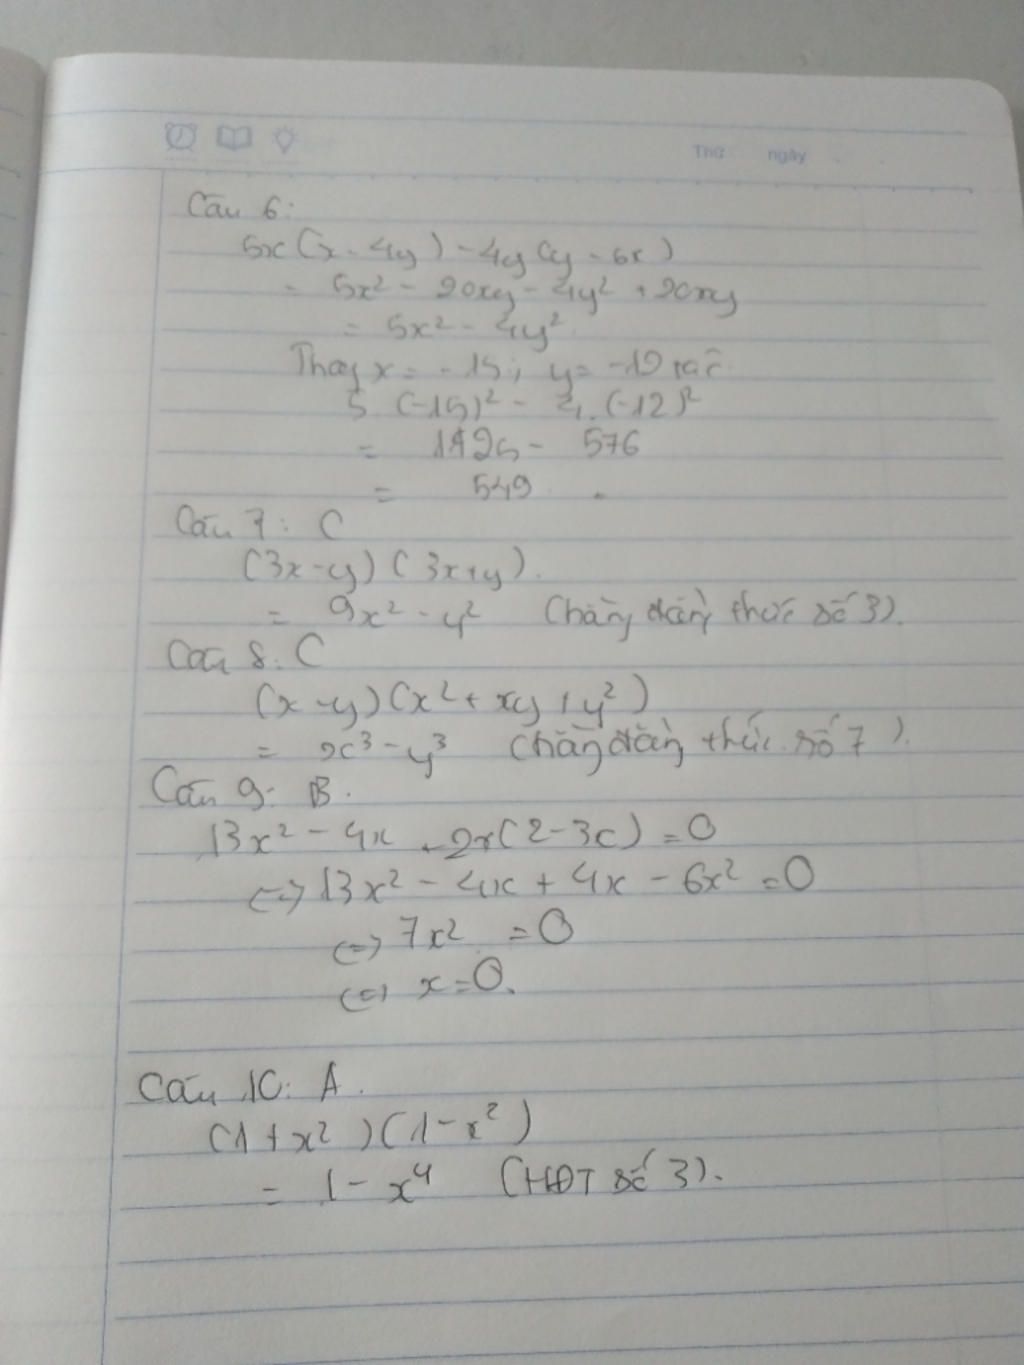 Thứ ngày
Câu 6:
5x(x - 4y) - 4y(y - 5x)
= 5x² - 20xy - 4y² + 20xy
= 5x² - 4y²
Thay x = -15; y = -12
5. (-15)² - 4. (-12)²
= 1125 - 576
= 549.
Câu 7: C
(3x-y)(3x+y).
= 9x² - y² (hằng đẳng thức số 3).
Câu 8: C
(x-y)(x² + xy + y²)
= x³ - y³ (hằng đẳng thức số 7).
Câu 9: B.
13x² - 4x 2x(2-3x) = 0
<=> 13x² - 4x + 4x - 6x² = 0
<=> 7x² = 0
<=> x = 0.
Câu 10: A.
(1+x²)(1-x²)
= 1 - x⁴ (HĐT số 3).